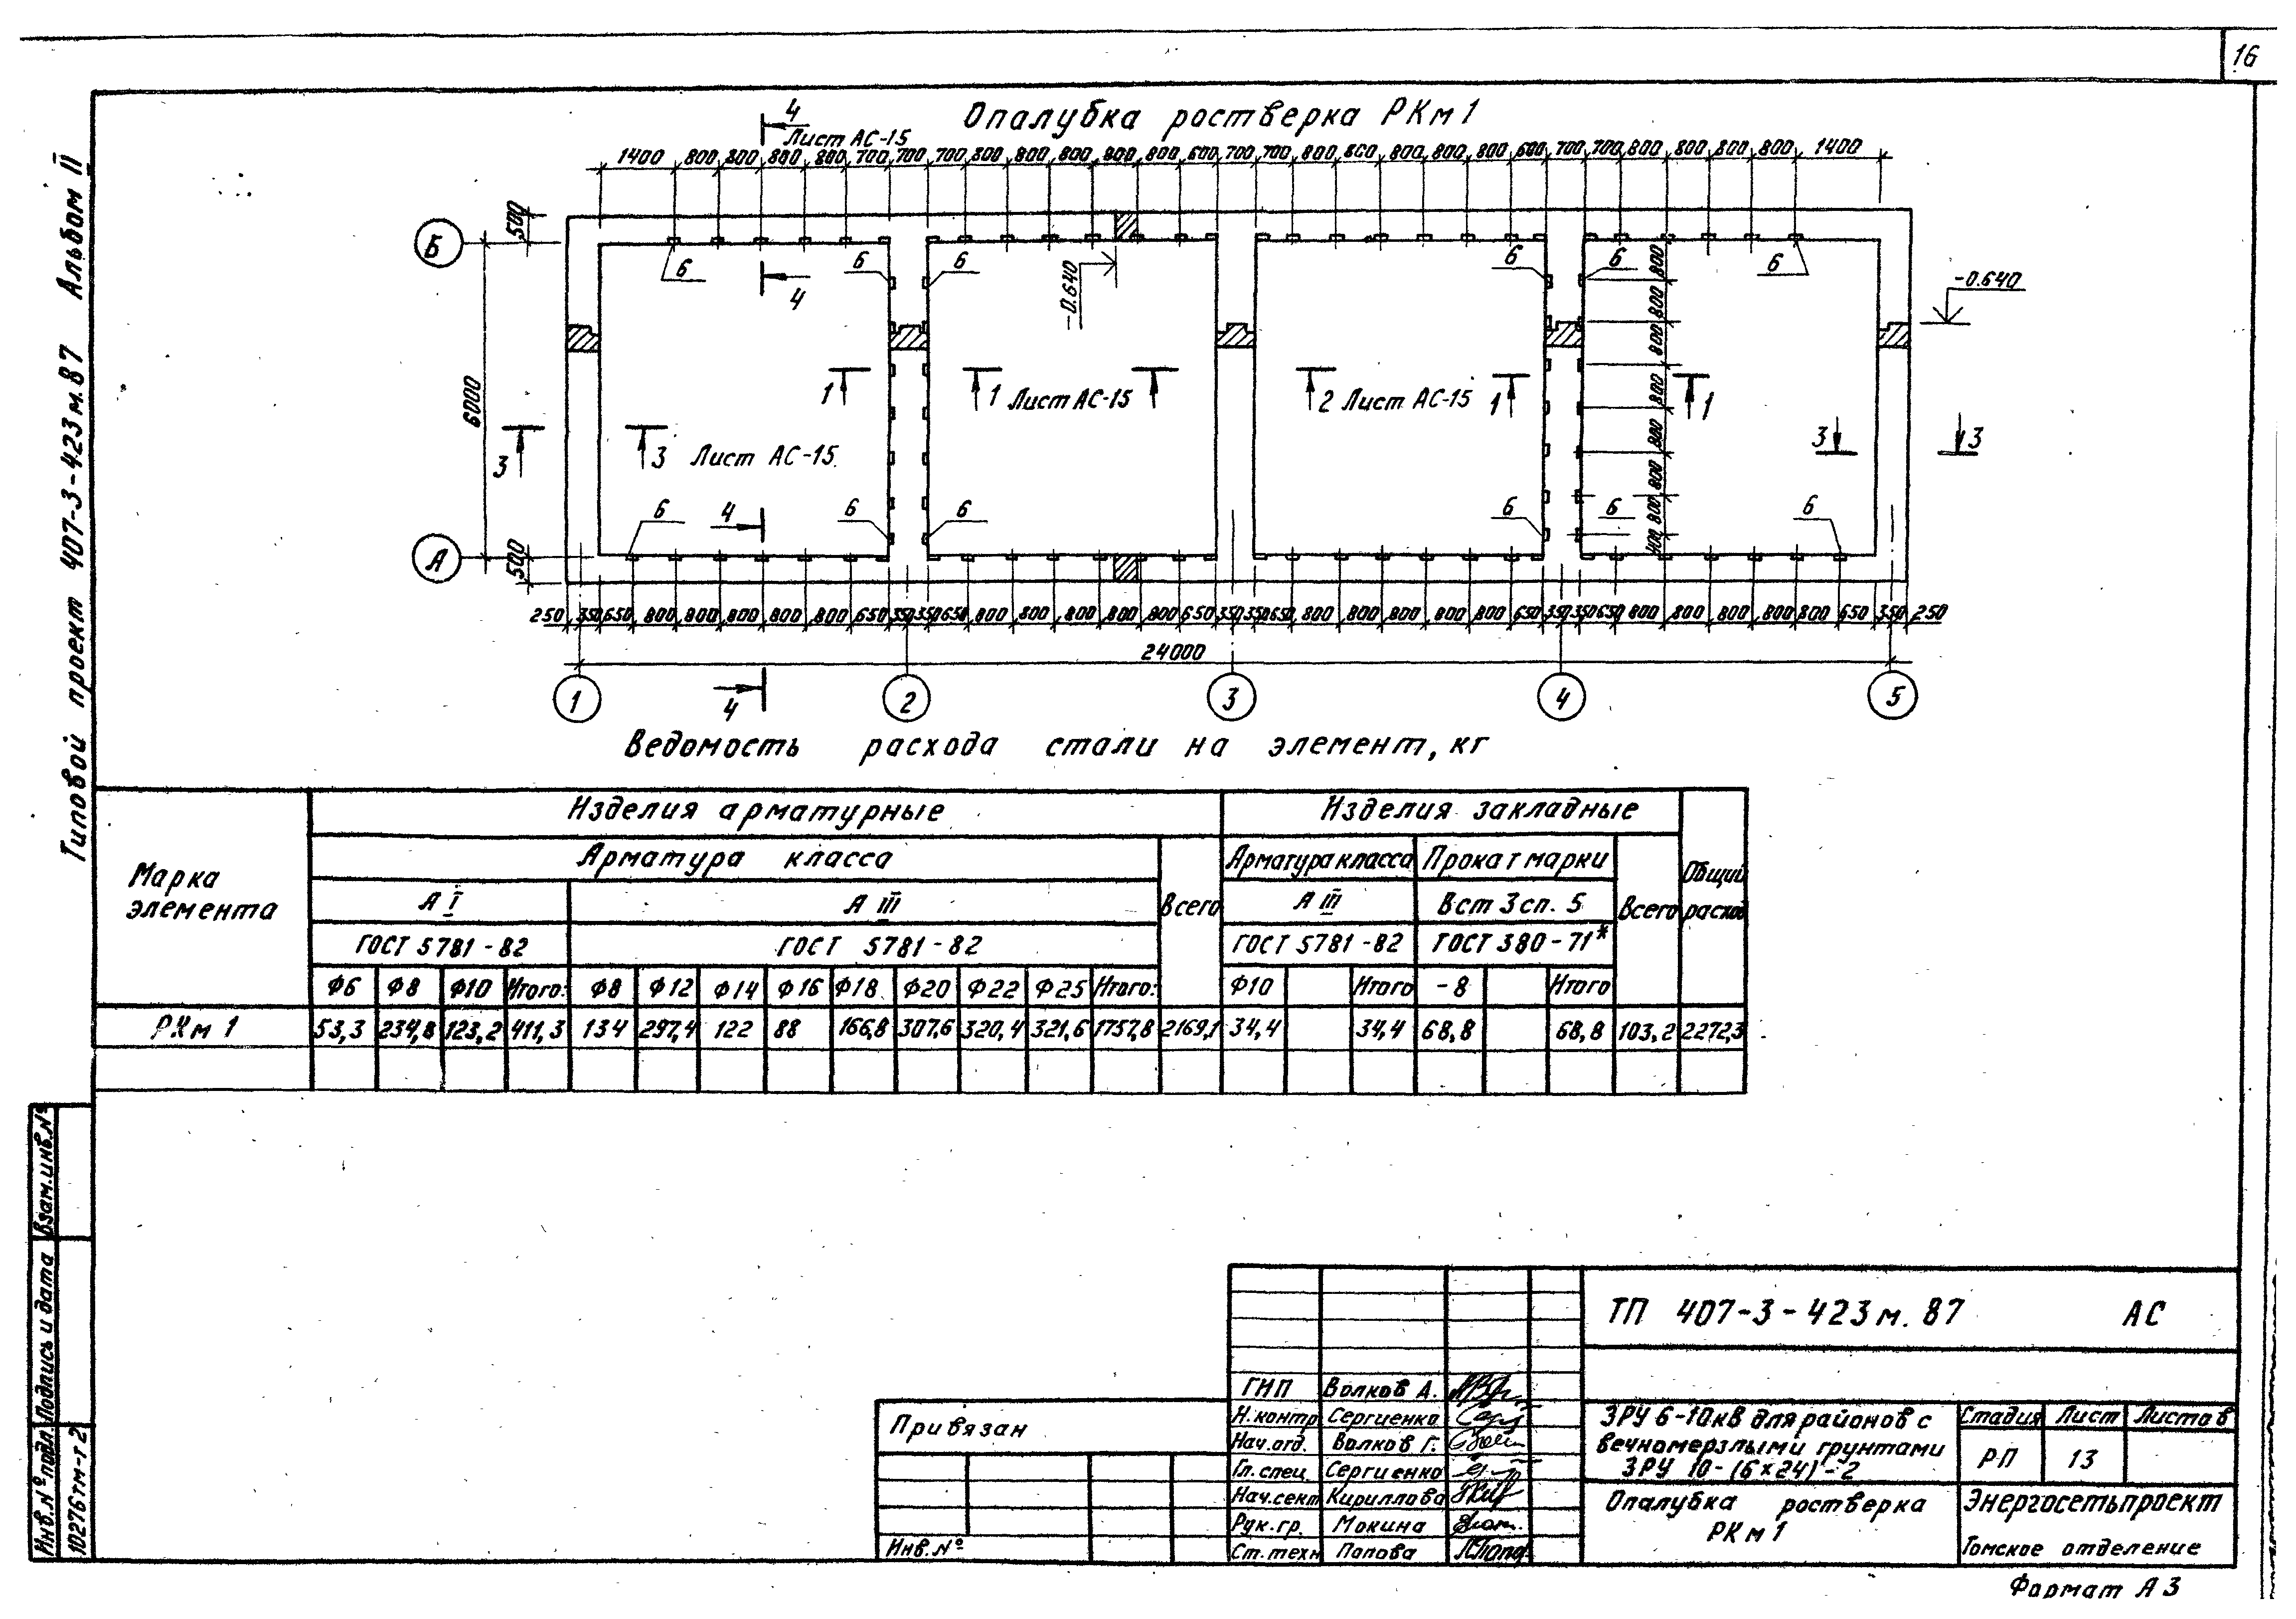 16
Типовой проект 407-3-423м.87 Альбом II
Опалубка ростверка РКм1
4
Лист АС-15
1400 800 800 800 800 700 700 700 800 800 800 800 800 600 700 700 800 800 800 800 800 600 700 700 800 800 800 800 1400
500
Б
6 6 6 6 6 6
-0.640
-0.640
4
800 800 800 800 800 800 800 400
6000
1 1 Лист АС-15
2 Лист АС-15 1 1
3 3 Лист АС-15
3 3
6 4 6 6 6 6 6
А
500
250 350 650 800 800 800 800 800 650 350 350 650 800 800 800 800 800 650 350 350 650 800 800 800 800 800 650 350 350 650 800 800 800 800 800 650 350 250
24000
4
1 2 3 4 5
Ведомость расхода стали на элемент, кг
Марка элемента
Изделия арматурные
Изделия закладные
Общий расход
Арматура класса
Всего
Арматура класса
Прокат марки
Всего
А I
А III
А III
Вст 3сп. 5
ГОСТ 5781-82
ГОСТ 5781-82
ГОСТ 5781-82
ГОСТ 380-71*
Ф6 Ф8 Ф10 Итого: Ф8 Ф12 Ф14 Ф16 Ф18 Ф20 Ф22 Ф25 Итого: Ф10 Итого -8 Итого
РКм 1 53,3 234,8 123,2 411,3 134 297,4 122 88 166,8 307,6 320,4 321,6 1757,8 2169,1 34,4 34,4 68,8 68,8 103,2 2272,3
Взам.инв.№
Подпись и дата
Инв.№ подл.
10276тм-т2
Привязан
Инв.№
ГИП Волков А.
Н.контр Сергиенко
Нач.отд. Волков Г.
Гл.спец Сергиенко
Нач.сект Кириллова
Рук.гр. Мокина
Ст.техн Попова
ТП 407-3-423м.87 АС
ЗРУ 6-10кВ для районов с
вечномерзлыми грунтами
ЗРУ 10-(6×24)-2
Стадия Лист Листов
РП 13
Опалубка ростверка
РКм1
Энергосетьпроект
Томское отделение
Формат А3